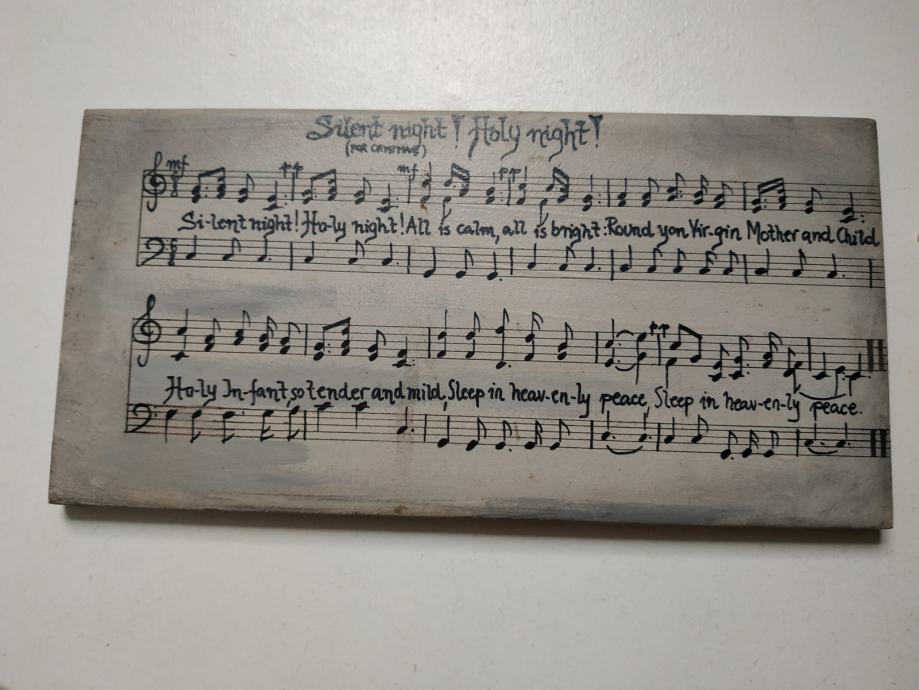 Silent night! Holy night!
(FOR CRISTMAS)
mf pp mf pp
Si-lent night! Ho-ly night! All is calm, all is bright: Round yon Vir-gin Mother and Child
pp
Ho-ly In-fant so tender and mild, Sleep in heav-en-ly peace, Sleep in heav-en-ly peace.